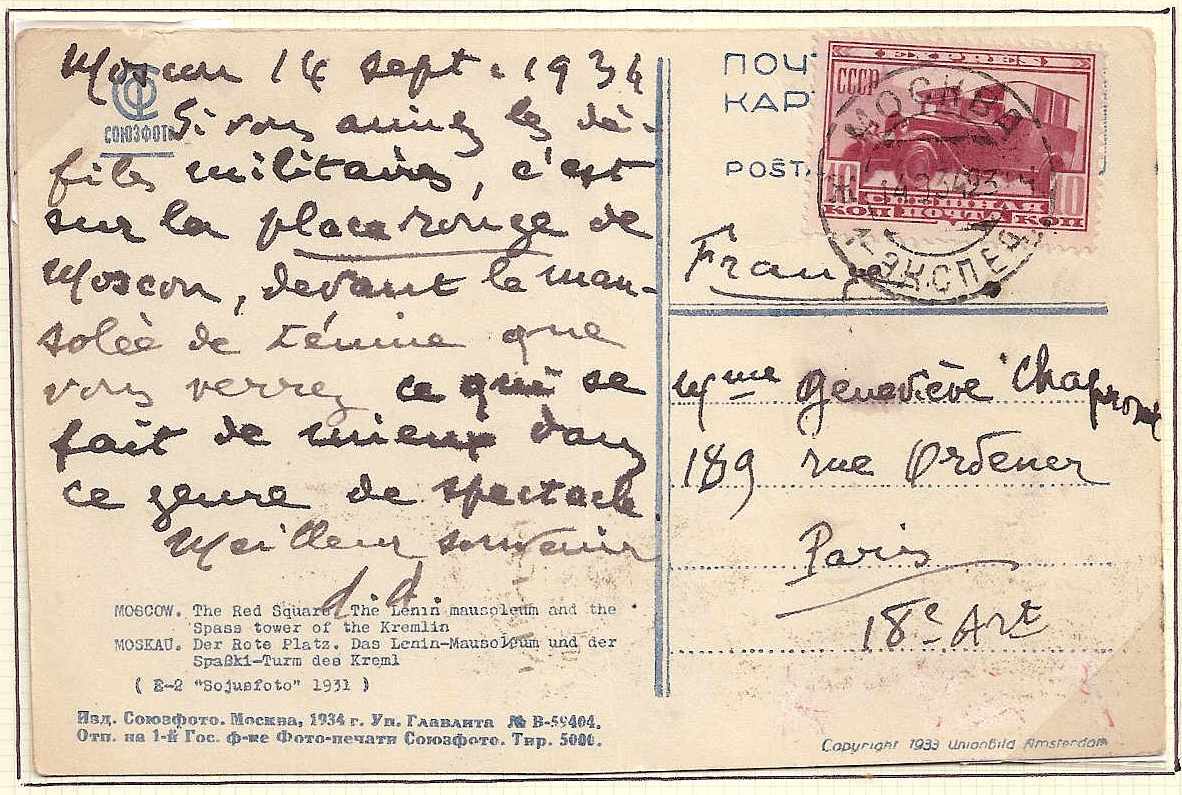 Moscou 14 sept. 1934
СОЮЗФОТО
Si vous aimez les dé-
filés militaires, c'est
sur la place rouge de
Moscou, devant le mau-
solée de Lénine que
vous verrez ce qui se
fait de mieux dans
ce genre de spectacle
Meilleur souvenir
d.d.
MOSCOW. The Red Square. The Lenin mausoleum and the
Spass tower of the Kremlin
MOSKAU. Der Rote Platz. Das Lenin-Mausoleum und der
Spaßki-Turm des Kreml
( E-2 "Sojusfoto" 1931 )
Изд. Союзфото. Москва, 1934 г. Уп. Главлита № В-59404.
Отп. на 1-й Гос. ф-ке Фото-печати Союзфото. Тир. 5000.
ПОЧ
КАР
POST
EXPRES
СССР
10 10
КОП ПОЧТА КОП
МОСКВА
ЭКСПЕД
France
Mme Geneviève
189 rue Ordener
Paris
18e Art
Copyright 1933 UnionBild Amsterdam